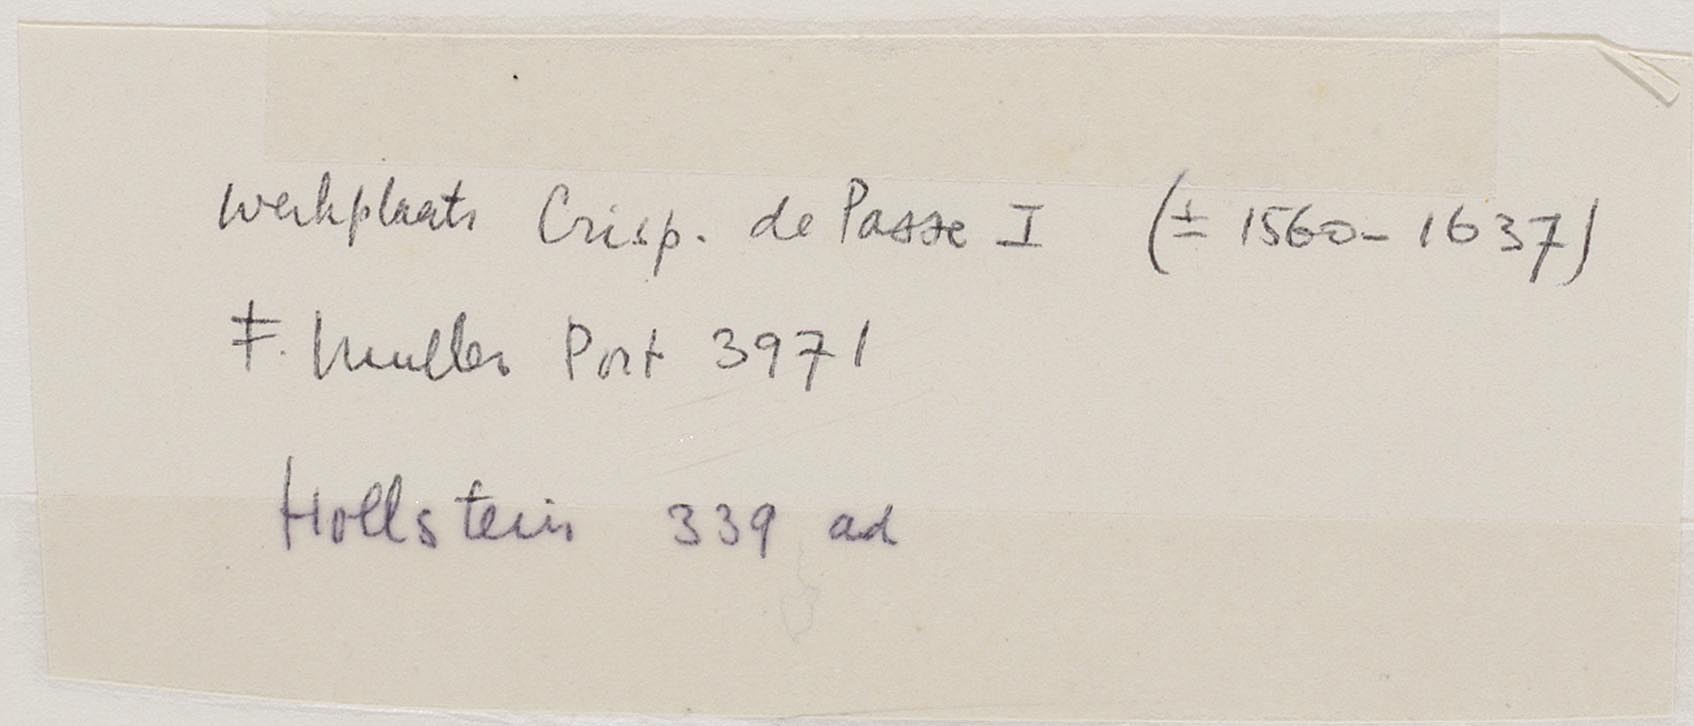 werkplaats Crisp. de Passe I (± 1560-1637)
F. Muller Port 3971
Hollstein 339 ad